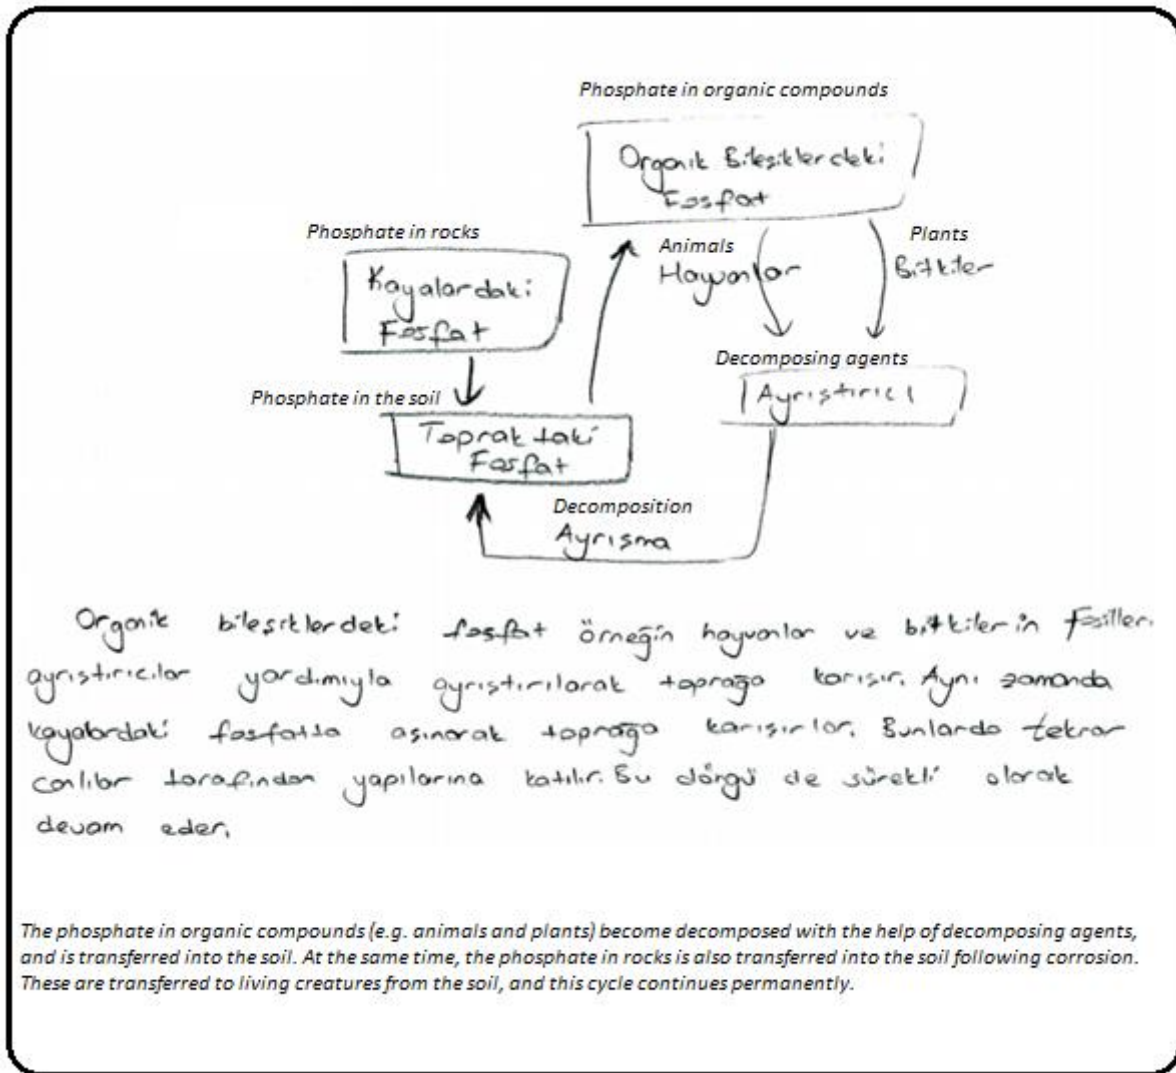 Phosphate in organic compounds
Organik Bileşiklerdeki
Fosfat
Phosphate in rocks
Kayalardaki
Fosfat
Animals
Hayvanlar
Plants
Bitkiler
Decomposing agents
Ayrıştırıcı
Phosphate in the soil
Topraktaki
Fosfat
Decomposition
Ayrışma
Organik bileşiklerdeki fosfat örneğin hayvanlar ve bitkilerin fosilleri
ayrıştırıcılar yardımıyla ayrıştırılarak toprağa karışır. Aynı zamanda
kayalardaki fosfatta aşınarak toprağa karışırlar. Bunlarda tekrar
canlılar tarafından yapılarına katılır. Bu döngü de sürekli olarak
devam eder.
The phosphate in organic compounds (e.g. animals and plants) become decomposed with the help of decomposing agents,
and is transferred into the soil. At the same time, the phosphate in rocks is also transferred into the soil following corrosion.
These are transferred to living creatures from the soil, and this cycle continues permanently.